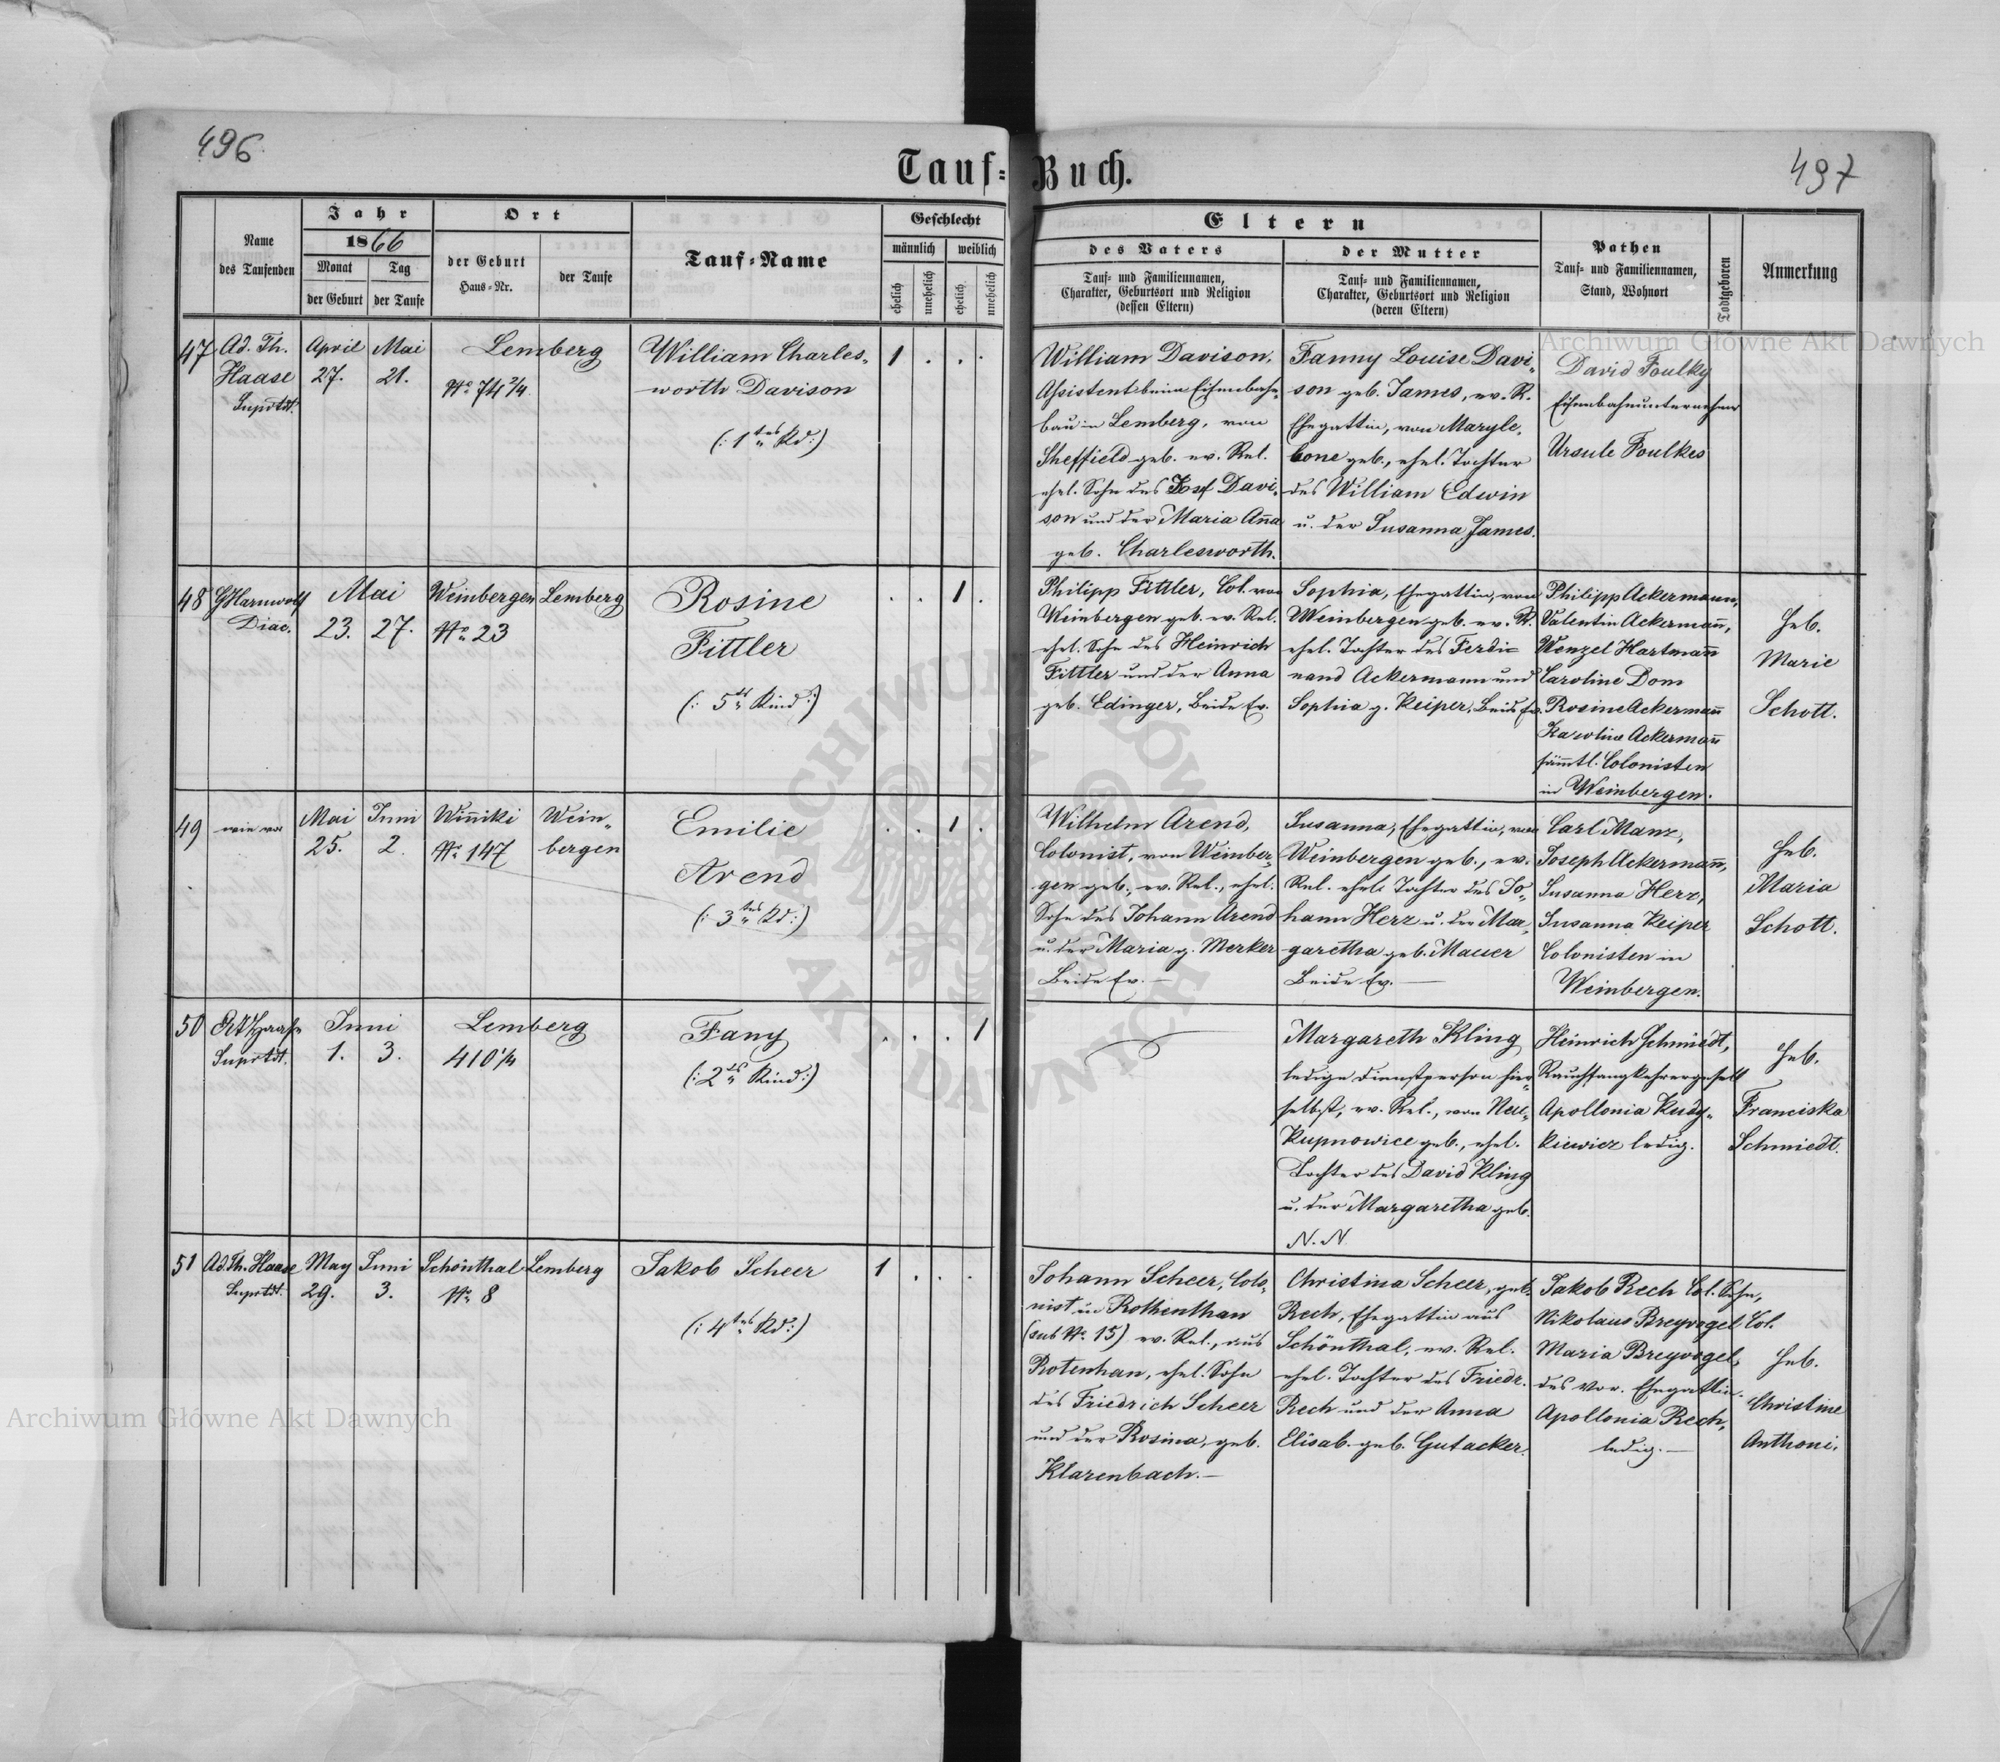 496
497
Tauf-Buch.
Name
des Taufenden
Jahr
1866
Monat
Tag
der Geburt
der Taufe
Ort
der Geburt
Haus-Nr.
der Taufe
Tauf-Name
Geschlecht
männlich
weiblich
ehelich
unehelich
ehelich
unehelich
Eltern
des Vaters
Tauf- und Familiennamen,
Charakter, Geburtsort und Religion
(dessen Eltern)
der Mutter
Tauf- und Familiennamen,
Charakter, Geburtsort und Religion
(deren Eltern)
Pathen
Tauf- und Familiennamen,
Stand, Wohnort
Todtgeboren
Anmerkung
47
Ad. Th.
Haase
Suprtdt.
April
27.
Mai
21.
Lemberg
No 74 2/4
William Charles-
worth Davison
(: 1tes Kd :)
1 . . .
William Davison,
Assistent beim Eisenbahn-
bau in Lemberg, von
Sheffield geb. ev. Rel.
ehel. Sohn des Josef Davi-
son und der Maria Anna
geb. Charlesworth.
Fanny Louise Davi-
son geb. James, ev. R.
Ehegattin, von Maryle-
bone geb., ehel. Tochter
des William Edwin
u. der Susanna James.
David Foulky
Eisenbahnunternehmer
Ursule Foulkes
48
Harnwolf
Diac.
Mai
23. 27.
Weinbergen
No 23
Lemberg
Rosine
Fittler
(: 5tes Kind :)
. . 1 .
Philipp Fittler, Col. von
Weinbergen geb. ev. Rel.
ehel. Sohn des Heinrich
Fittler und der Anna
geb. Edinger, Beide Ev.
Sophia, Ehegattin, von
Weinbergen geb. ev. R.
ehel. Tochter des Ferdi-
nand Ackermann und
Sophia g. Keiper, Beide Ev.
Philipp Ackermann,
Valentin Ackermañ,
Wenzel Hartmañ
Caroline Dom
Rosine Ackermañ
Karoline Ackermañ
sämtl. Colonisten
in Weinbergen.
Heb.
Marie
Schott.
49
wie vor
Mai
25.
Juni
2.
Wiñiki
No 147
Wein-
bergen
Emilie
Arend
(: 3tes Kd :)
. . 1 .
Wilhelm Arend,
Colonist, von Weinber-
gen geb., ev. Rel., ehel.
Sohn des Johann Arend
u. der Maria g. Merker
Beide Ev. —
Susanna, Ehegattin, von
Weinbergen geb., ev.
Rel. ehel. Tochter des Jo-
hann Herz u. der Mar-
garetha geb. Mauer
Beide Ev. —
Carl Manz,
Joseph Ackermañ,
Susanna Herz,
Susanna Keiper
Colonisten in
Weinbergen.
Heb.
Maria
Schott.
50
Haase
Suprtdt.
Juni
1. 3.
Lemberg
410 1/4
Fany
(: 2tes Kind :)
. . . 1
Margareth Kling
ledige Dienstperson hier-
selbst, ev. Rel., von Neu-
Kupnowice geb., ehel.
Tochter des David Kling
u. der Margaretha geb.
N. N
Heinrich Schmiedt,
Rauchfangkehrergesell
Apollonia Kudy-
kiewicz ledig.
Heb.
Franciska
Schmiedt.
51
Ad. Th. Haase
Suprtdt.
May
29.
Juni
3.
Schönthal
No 8
Lemberg
Jakob Scheer
(: 4tes Kd :)
1 . . .
Johann Scheer, Colo-
nist in Rothenhan
(sub No 15) ev. Rel., aus
Rotenhan, ehel. Sohn
des Friedrich Scheer
und der Rosina, geb.
Klarenbach. —
Christina Scheer, geb.
Rech, Ehegattin aus
Schönthal, ev. Rel.
ehel. Tochter des Friedr.
Rech und der Anna
Elisab. geb. Gutacker.
Jakob Rech Col. Sohn,
Nikolaus Breyvogel Col.
Maria Breyvogel,
des Vor. Ehegattin.
Apollonia Rech,
ledig. —
Heb.
Christine
Anthoni.
Archiwum Główne Akt Dawnych
Archiwum Główne Akt Dawnych
ARCHIWUM GŁÓWNE AKT DAWNYCH